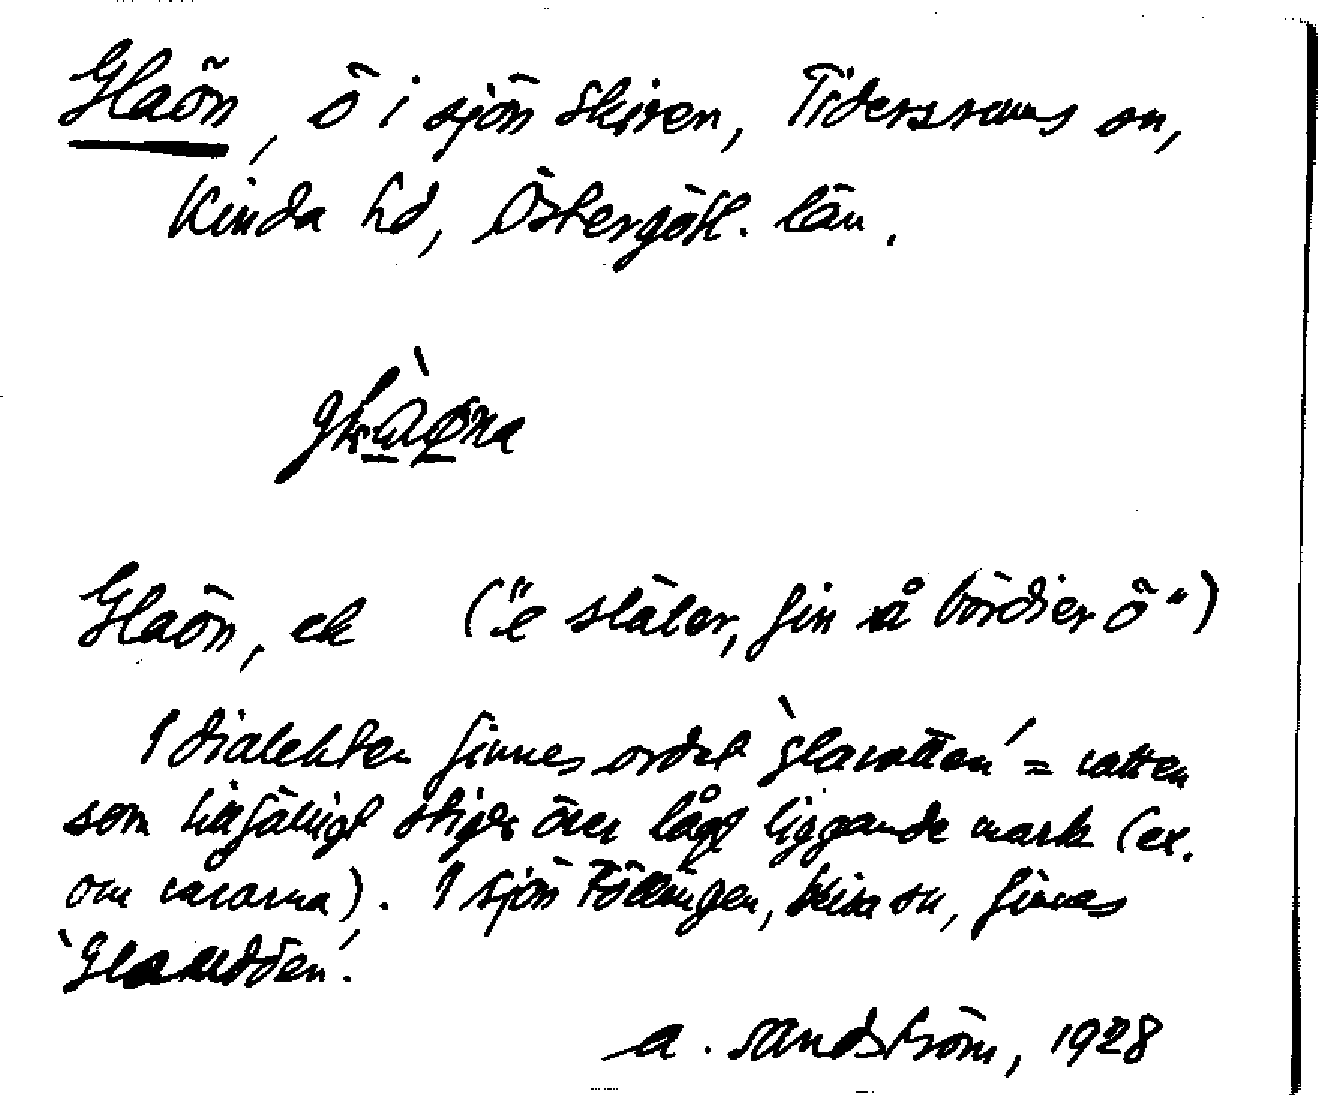 Glaön, ö i sjön Skiren, Tidersrums sn,
Kinda hd, Östergötl. län.
Glaön, ek ("e släter, fin å bördier ö")
I dialekten finnes ordet 'glavatten' = vatten
som tillfälligt stiger över lågt liggande mark (ex.
om vårarna). I sjön Föllingen, Kisa sn, finnes
'Glaudden'.
A. Sandström, 1928